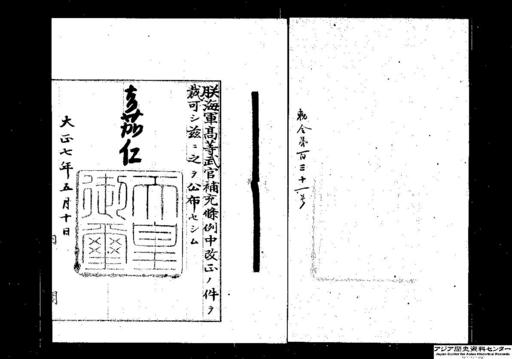 勅令第百三十一号
朕海軍高等武官補充條例中改正ノ件ヲ
裁可シ茲ニ之ヲ公布セシム
嘉仁
天皇御璽
大正七年五月十日
アジア歴史資料センター
Japan Center for Asian Historical Records